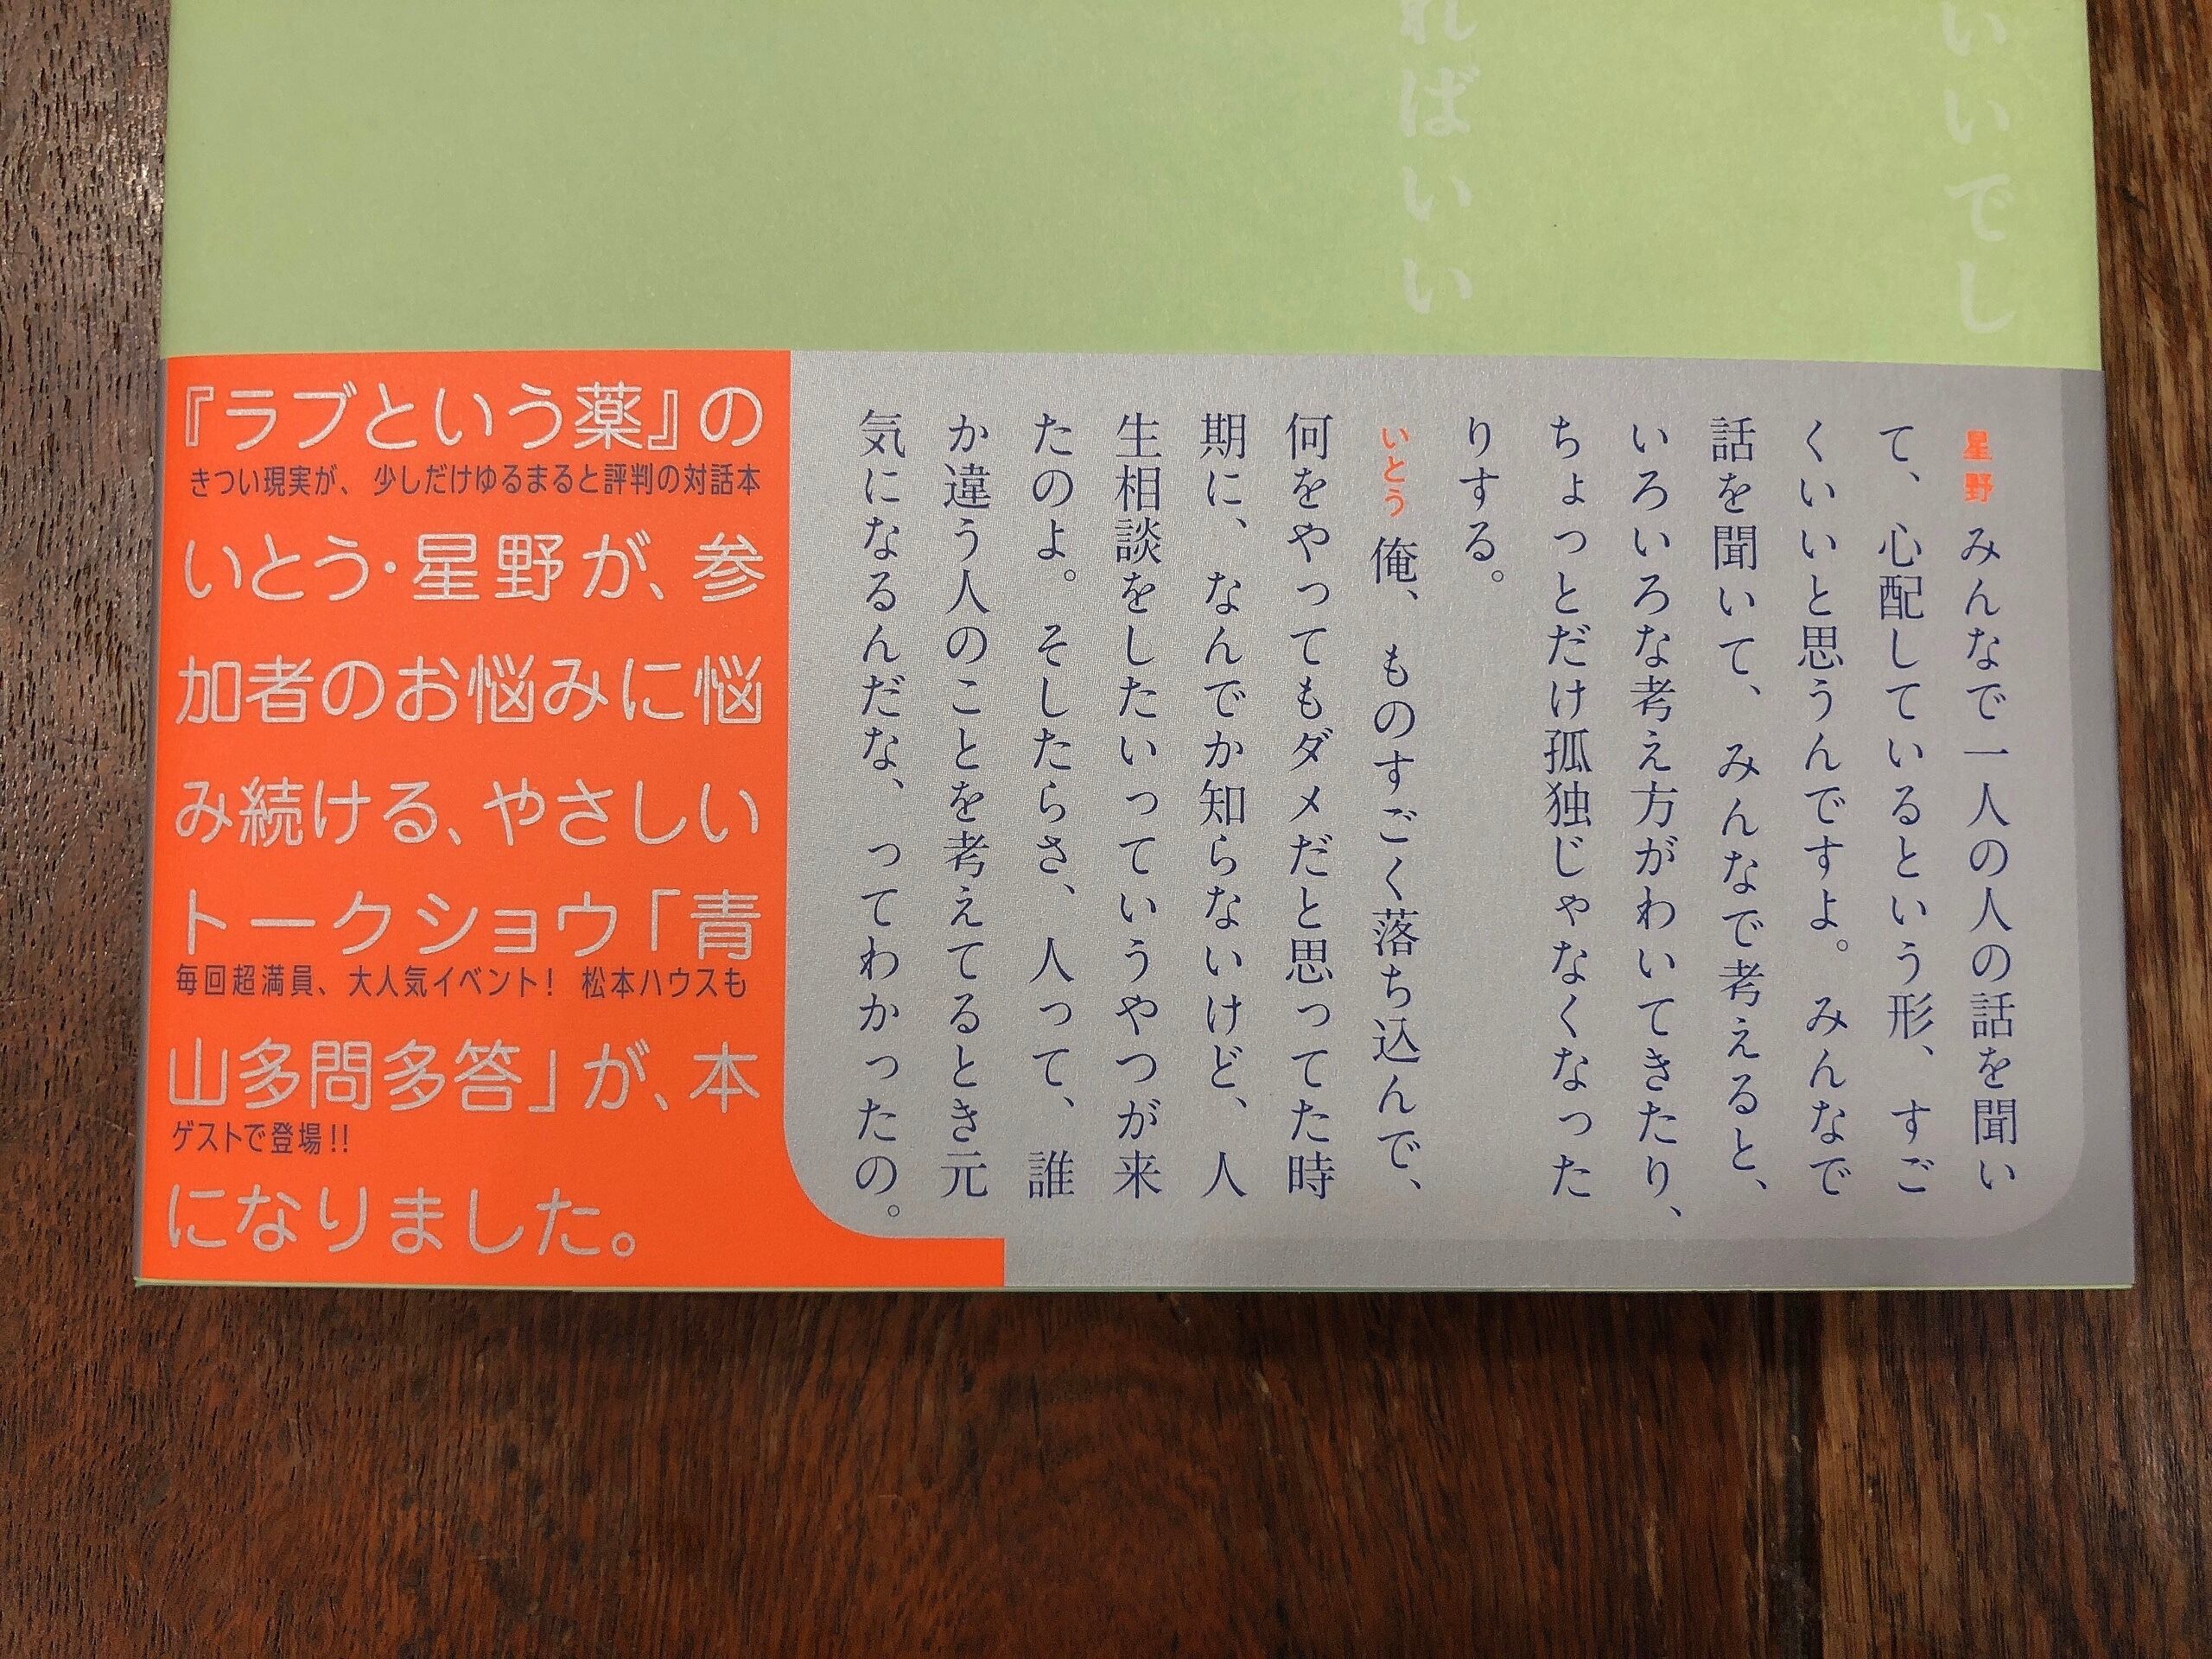 いいでし
ればいい
星野 みんなで一人の人の話を聞い
て、心配しているという形、すご
くいいと思うんですよ。みんなで
話を聞いて、みんなで考えると、
いろいろな考え方がわいてきたり、
ちょっとだけ孤独じゃなくなった
りする。
いとう 俺、ものすごく落ち込んで、
何をやってもダメだと思ってた時
期に、なんでか知らないけど、人
生相談をしたいっていうやつが来
たのよ。そしたらさ、人って、誰
か違う人のことを考えてるとき元
気になるんだな、ってわかったの。
『ラブという薬』の
きつい現実が、少しだけゆるまると評判の対話本
いとう・星野が、参
加者のお悩みに悩
み続ける、やさしい
トークショウ「青
毎回超満員、大人気イベント! 松本ハウスも
山多問多答」が、本
ゲストで登場!!
になりました。